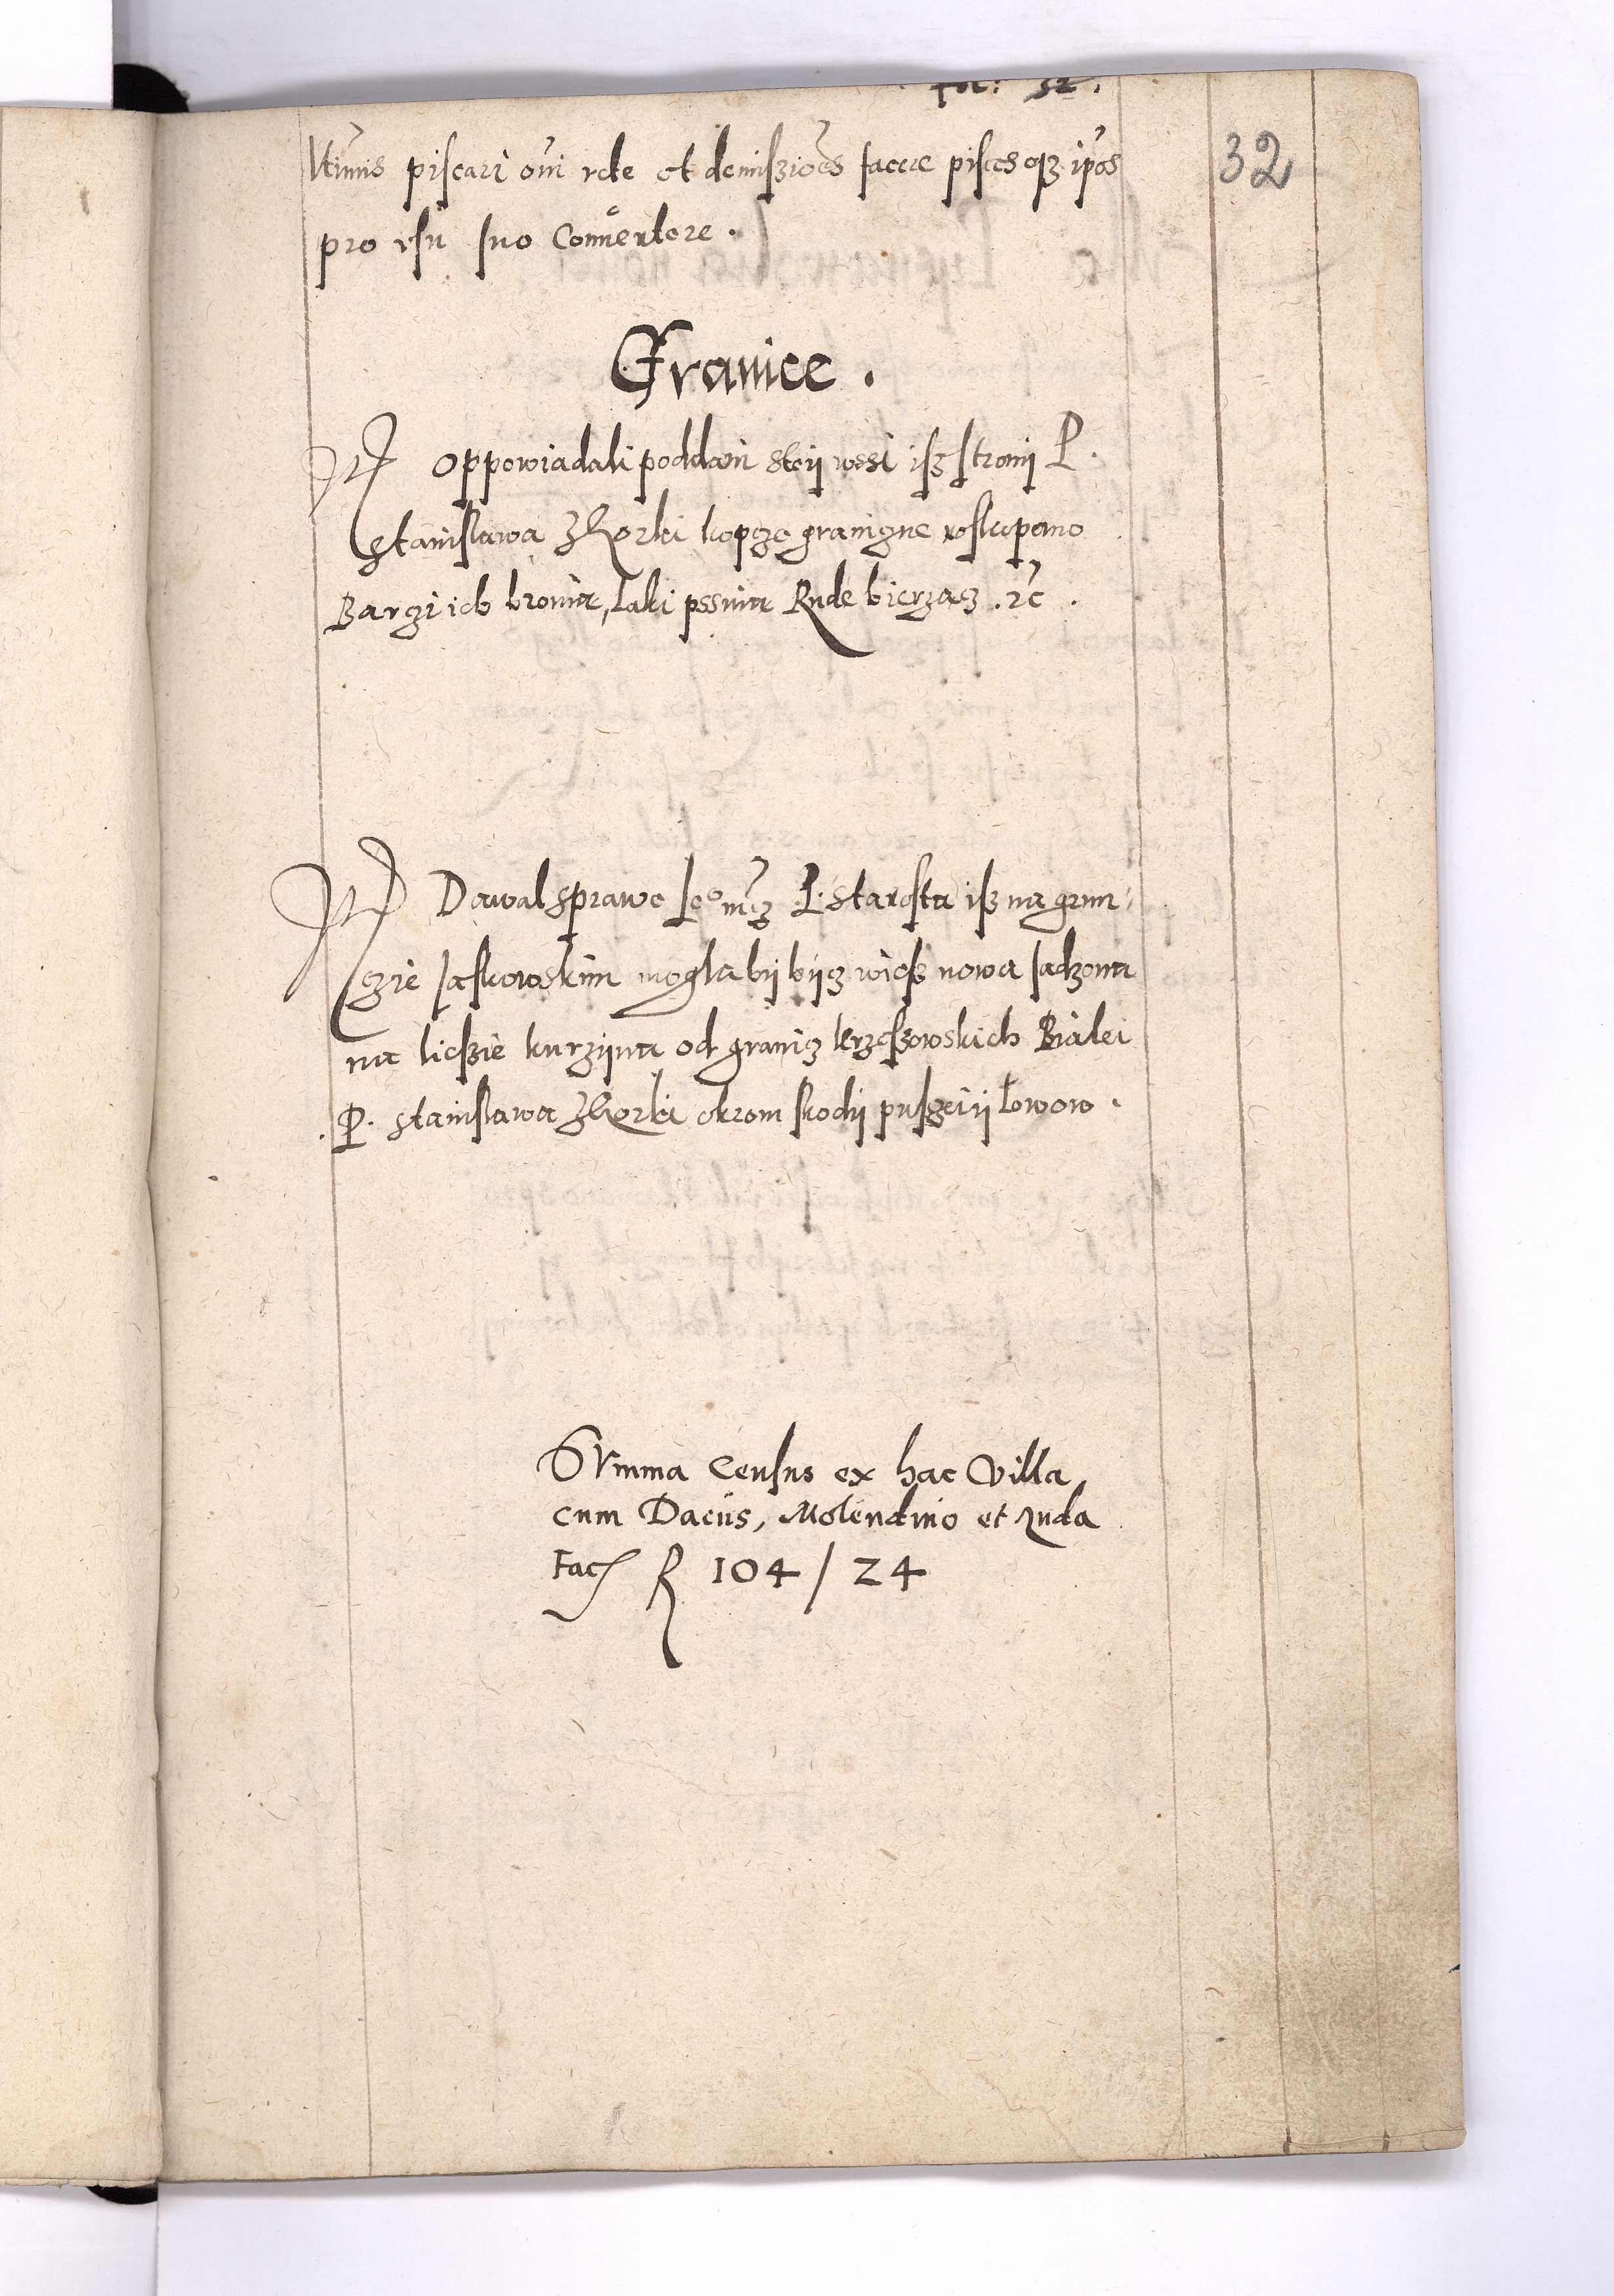 fol: 32.
32
Vtimis piscari oni rete et demiszioes facere pisces qz ipos
pro vsu suo Conuertere.
Granice.
Oppowiadali poddani stey wssi isz strony P.
Stanislawa Z Gorki kopcze graniczne roskopano
Barczi ich bronia, laki pssuia Rude bierzacz. rc.
Dawal sprawe P. starosta isz na grun,
czie Jaskowskim mogla by bycz wiesz nowa sadzona
na liessie kurzyma od granicz krzeszowskich Bialei
P. Stanislawa Z Gorki okrom skody puszczy y lowow.
Summa Census ex hac Villa
cum Daciis, Molendino et ruda
Fac R 104 / 24